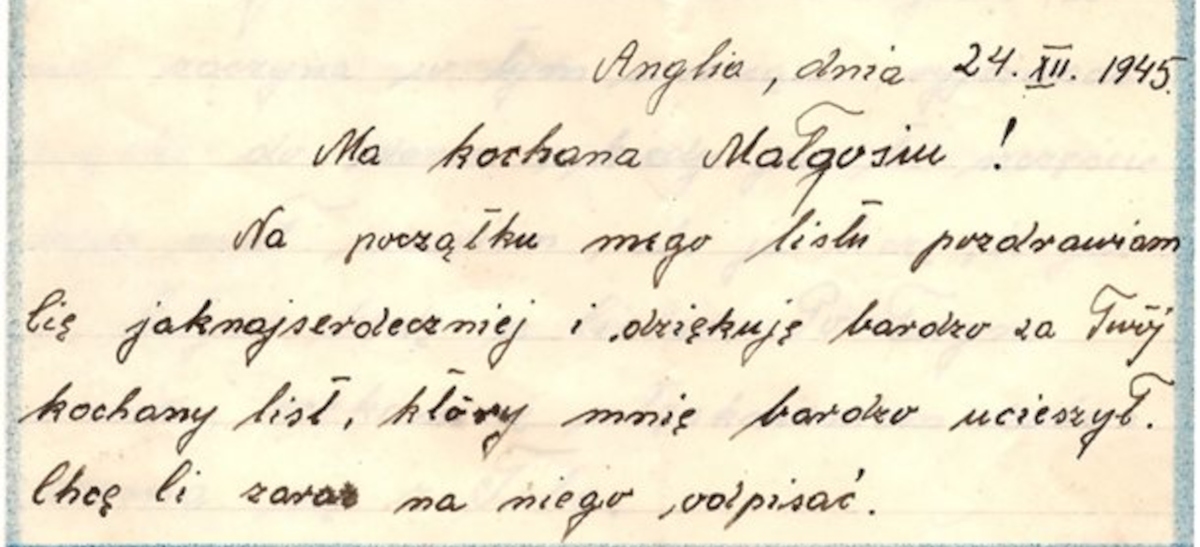 Anglia, dnia 24. XII. 1945.
Ma kochana Małgosiu!
Na początku mego listu pozdrawiam
Cię jaknajserdeczniej i dziękuję bardzo za Twój
kochany list, który mnię bardzo ucieszył.
Chcę Ci zaraz na niego odpisać.